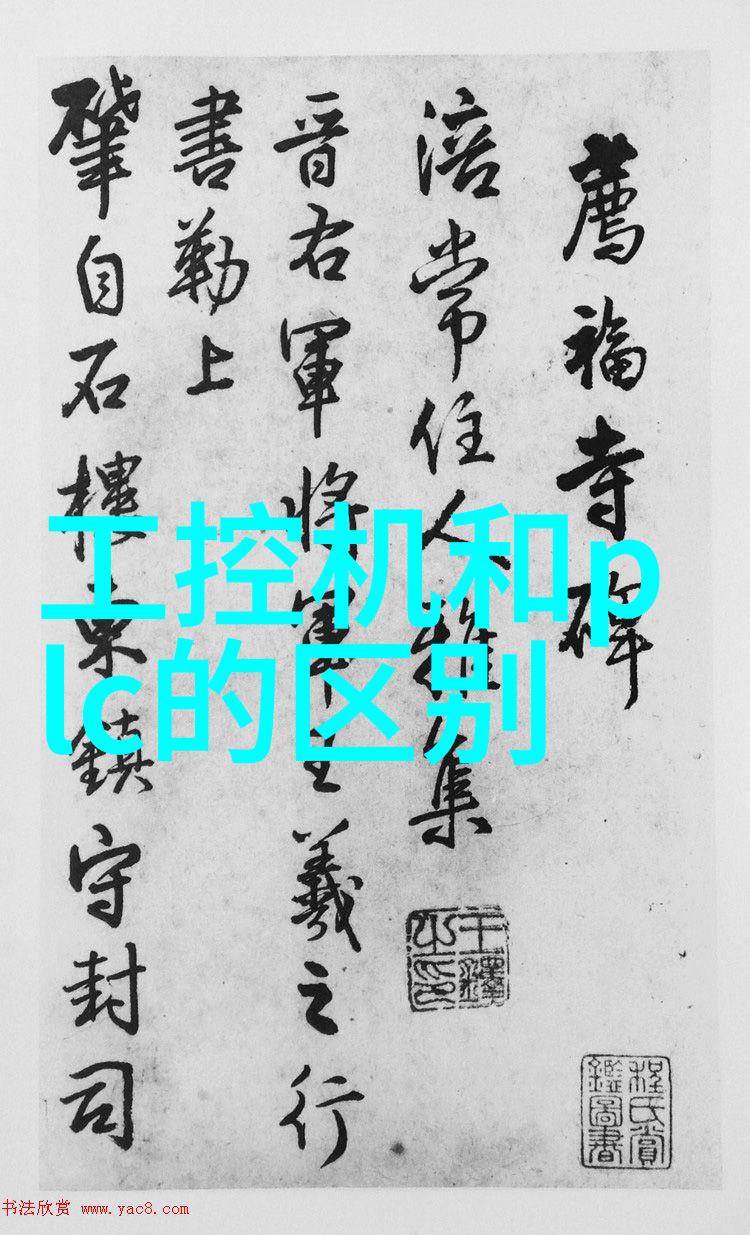 薦福寺碑
涪常住人雜集
晉右軍將軍王羲之行
書勒上
肇自石樓東鎮守封司
工控机和p
lc的区别
王鐸
之印
程氏賞
鑑圖書
书法欣赏 www.yac8.com